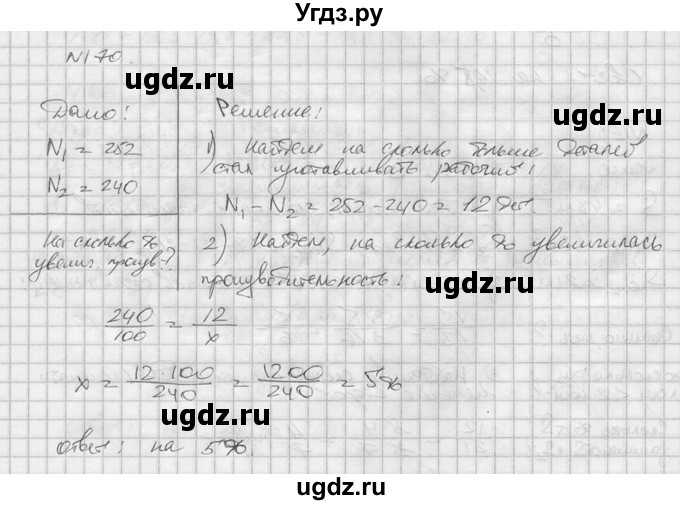 Угдз.ру
N170.
ugdz.ru
ugdz.ru
Дано:
N₁ = 252
N₂ = 240
На сколько %
увелич. произв-?
Решение:
1) Найдем на сколько больше деталей
стал изготавливать рабочий:
N₁ - N₂ = 252 - 240 = 12 дет.
ugdz.ru
ugdz.ru
2) Найдем, на сколько % увеличилась
производительность:
ugdz.ru
240/100 = 12/x
x = 12·100/240 = 1200/240 = 5%
ugdz.ru
ugdz.ru
ответ: на 5%.
ugdz.ru
ugdz.ru